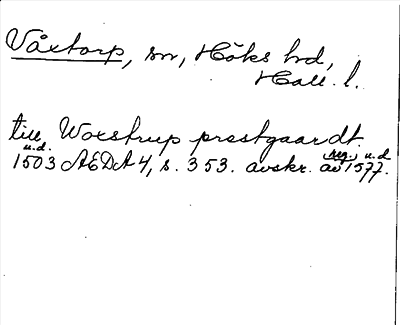 Våxtorp, sn, Höks hd,
Hall. l.
till Woxstrup prestgaardt.
u.d. reg. u.d.
1503 AEDA 4, s. 353. avskr. av 1577.